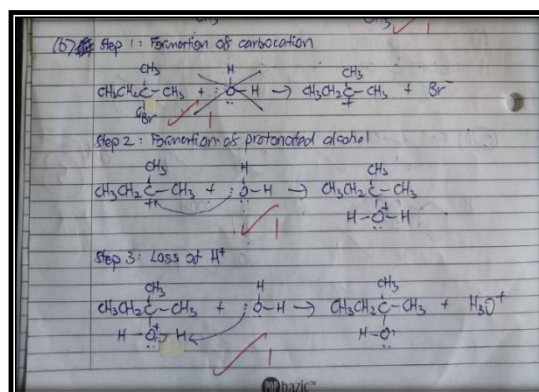 (b) Step 1: Formation of carbocation
CH₃ H CH₃
CH₃CH₂C–CH₃ + :O–H → CH₃CH₂C–CH₃ + Br⁻
Br 1 +
Step 2: Formation of protonated alcohol
CH₃ H CH₃
CH₃CH₂C–CH₃ + :O–H → CH₃CH₂C–CH₃
+ H–O⁺–H
1
Step 3: Loss of H⁺
CH₃ H CH₃
CH₃CH₂C–CH₃ + :O–H → CH₃CH₂C–CH₃ + H₃O⁺
H–O⁺–H H–O:
1
POP bazic™